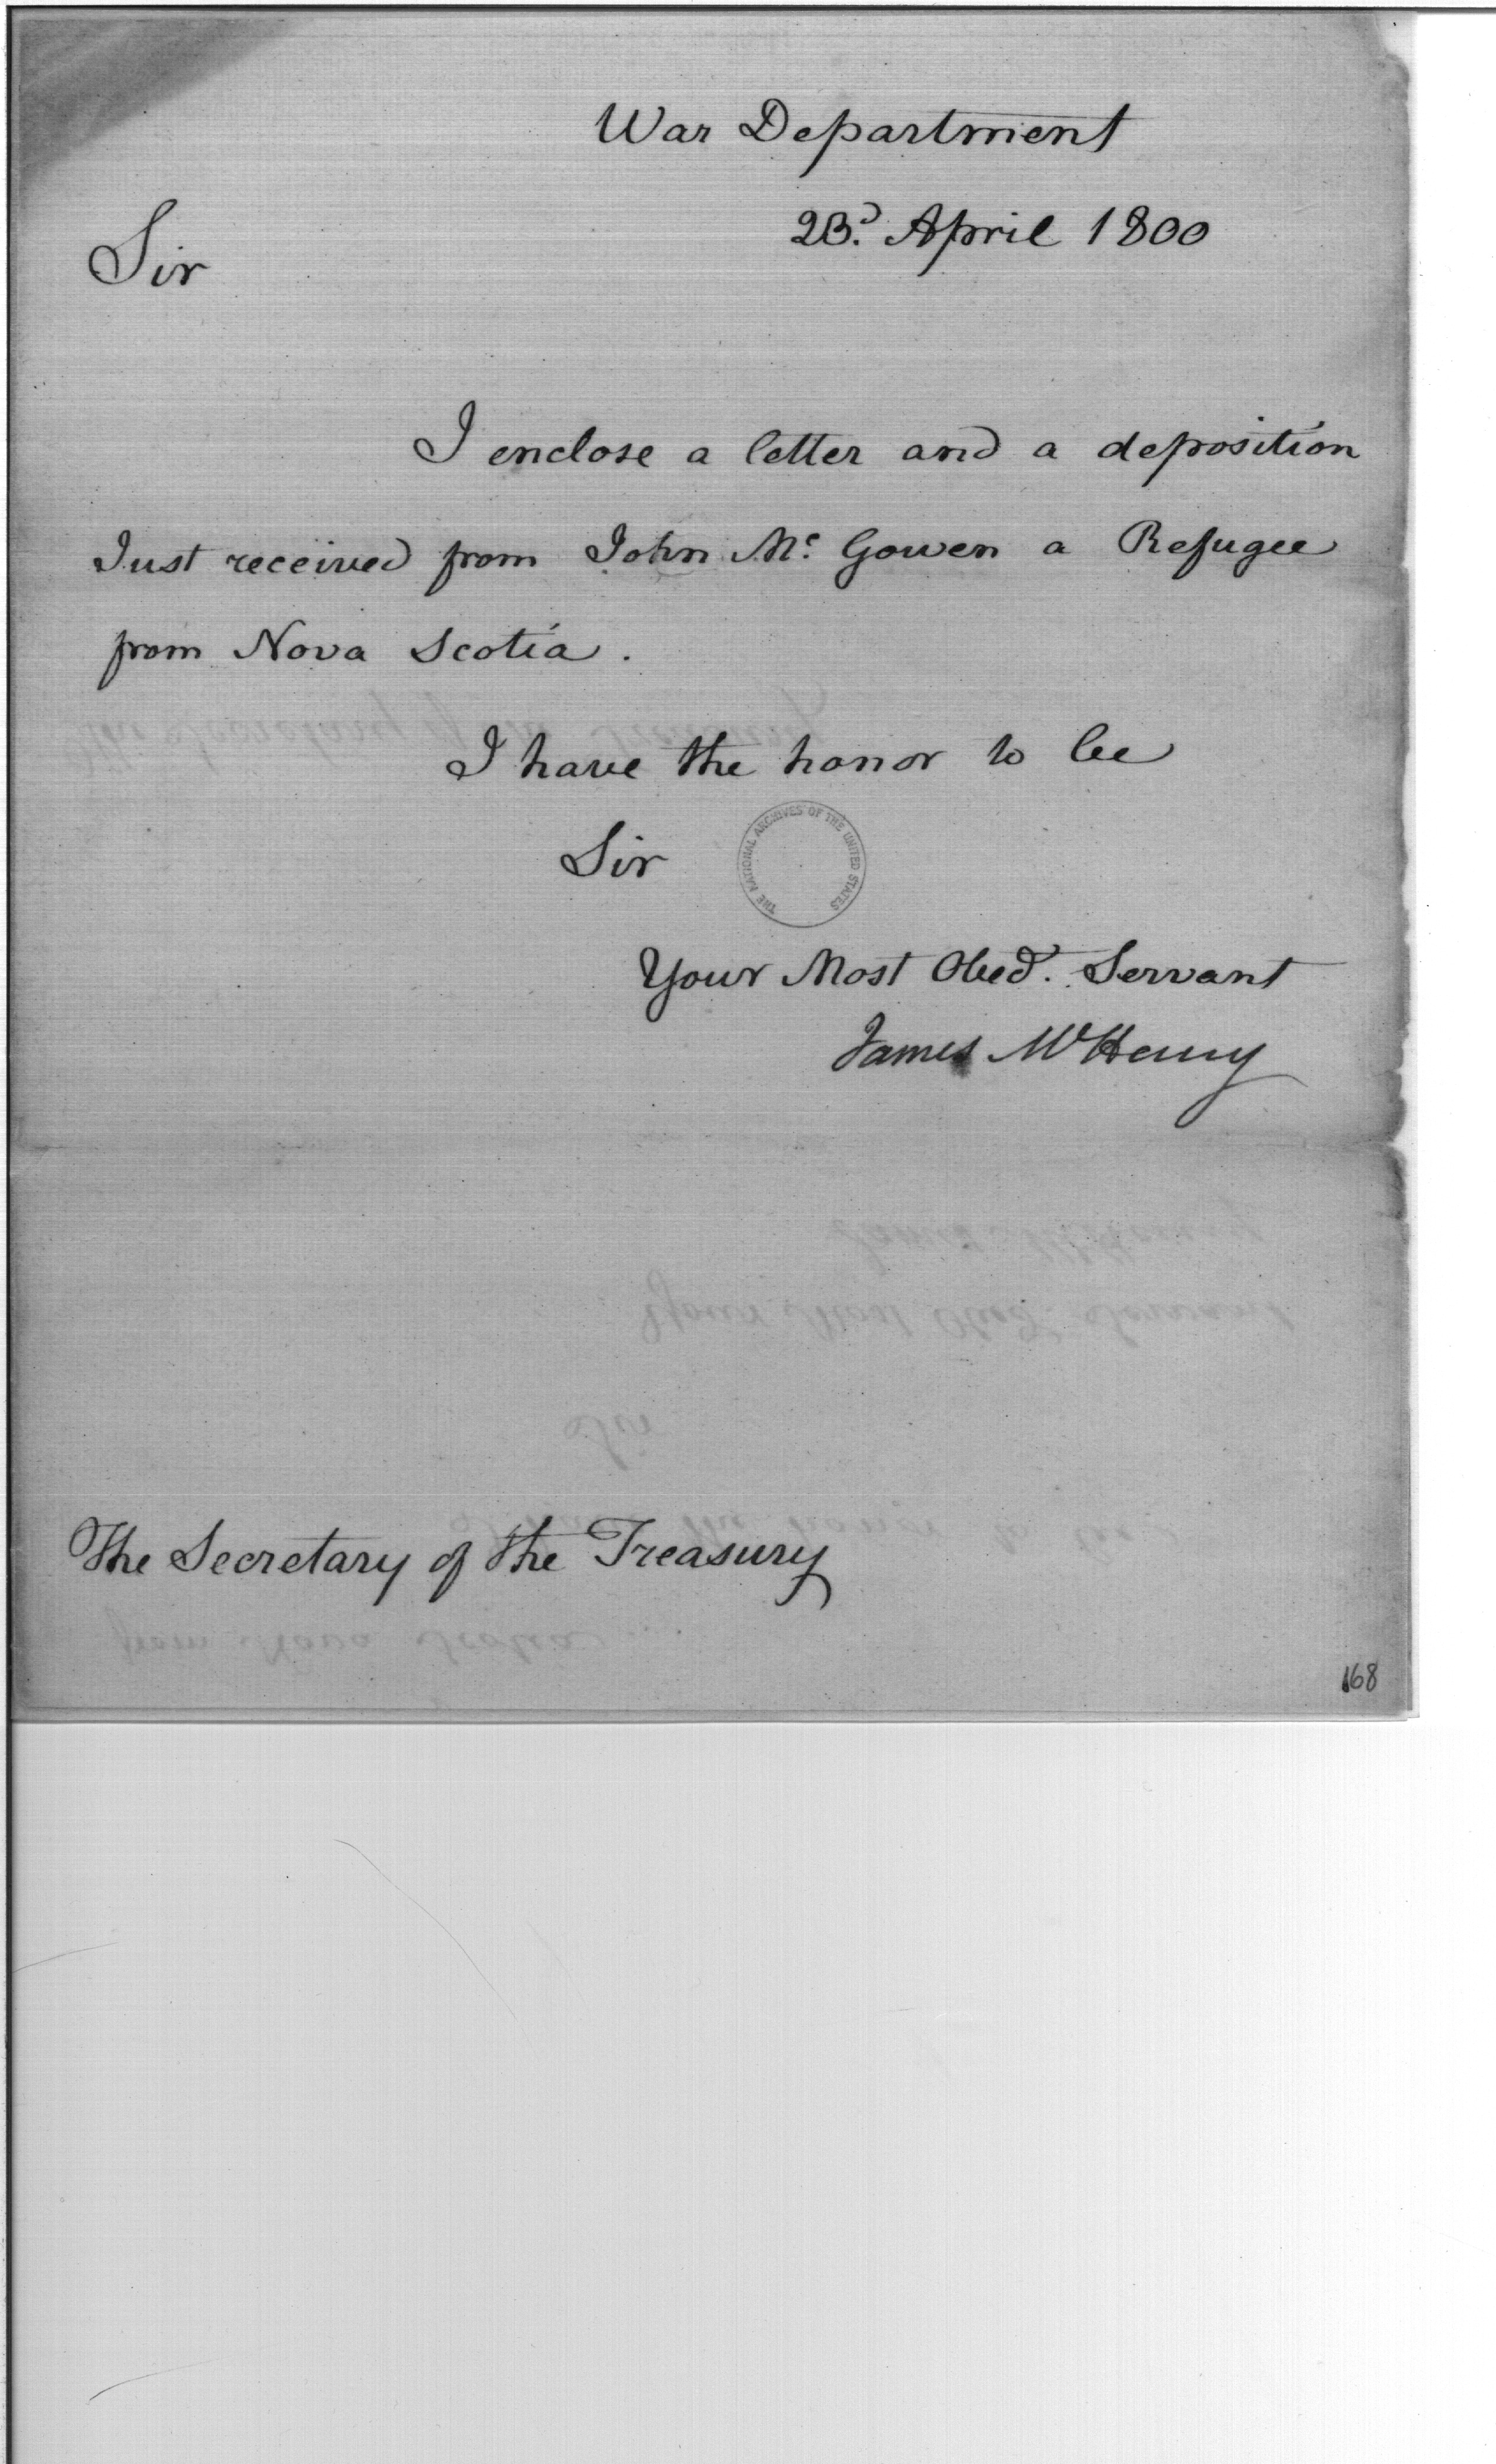 War Department
23.d April 1800
Sir
I enclose a letter and a deposition
Just received from John Mc. Gowen a Refugee
from Nova Scotia.
I have the honor to be
Sir
THE NATIONAL ARCHIVES OF THE UNITED STATES
Your Most Obed.t Servant
James McHenry
The Secretary of the Treasury
168